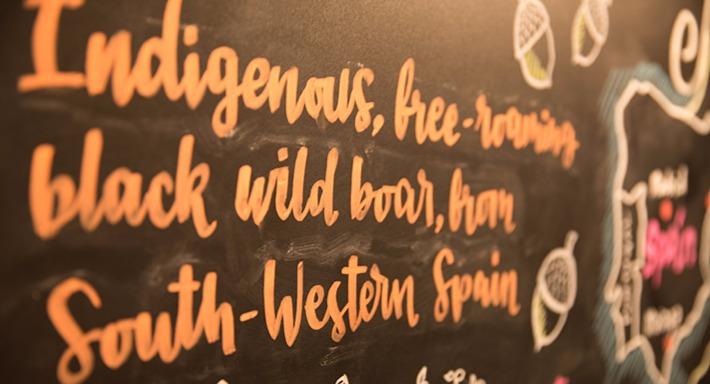 Indigenous, free-roaming
black wild boar, from
South-Western Spain
Spain